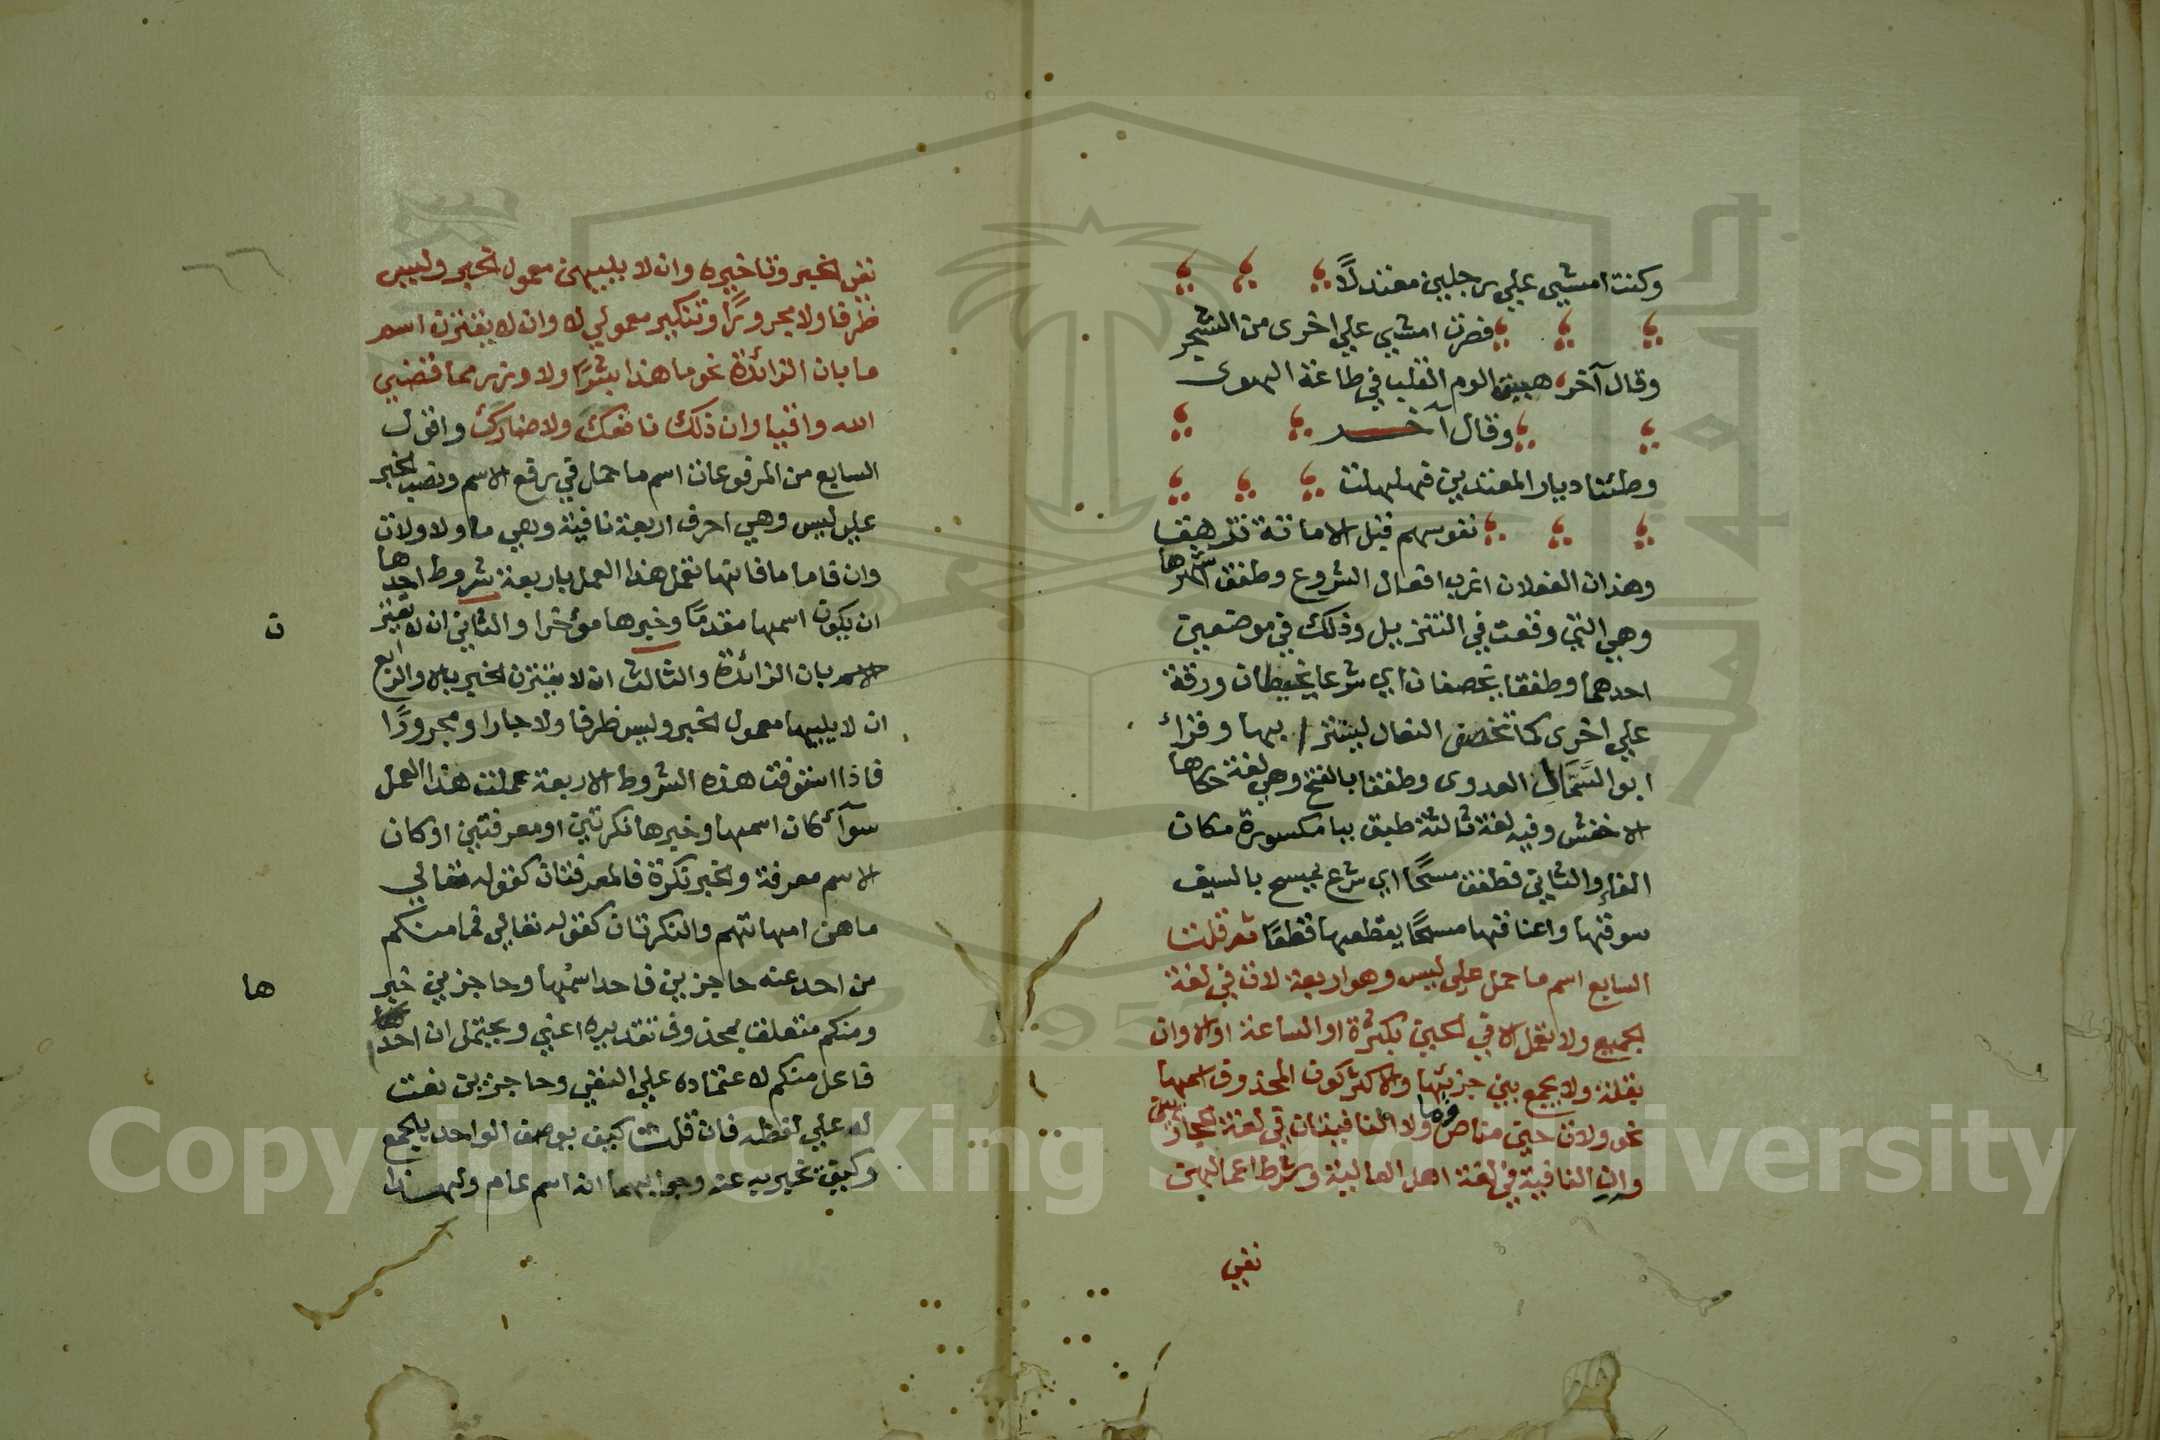 وكنت امشي علي رجلين معتدلاً
فصرت امشي علي اخرى من الشجر
وقال آخر هببت الوم القلب في طاعة الهوى
وقال آخر
وطئنا ديار المعتدين فهلهلت
نفوسهم قبل الاماتة تزهق
وهذان الفعلان اغرب افعال الشروع وطفق اشهرها
وهي التي وقعت في التنزيل وذلك في موضعين
احدهما وطفقا يخصفان اي شرعا يخيطان ورقة
علي اخرى كما تخصف النعال ليستترا بها وقرأ
ابو السَّمَّال العدوى وطفقا بالفتح وهي لغة حكاها
الاخفش وفيه لغة ثالثة طبق ببا مكسورة مكان
الفا والثاني فطفق مسحًا اي شرع يمسح بالسيف
سوقها واعناقها مسحًا يقطعها قطعًا ثم قلت
السابع اسم ما حمل علي ليس وهو اربعة لات في لغة
الجميع ولا تعمل الا في الحين بكثرة او الساعة او الاوان
بقلة ولا يجمع بين جزئيها والاكثر كون المحذوف اسمها
نحو ولات حين مناص وما ولا النافيتان في لغة الحجازيين
وان النافية في لغة اهل العالية وشرط اعمالهن
نفي
نفي الخبر وتاخيره وان لا يليهن معمول الخبر وليس
ظرفا ولا مجرورًا وتنكير معمولي لا وان لا يقترن اسم
ما بان الزائدة نحو ما هذا بشرًا ولا وزر مما قضي
الله واقيا وان ذلك نافعك ولا ضارك واقول
السابع من المرفوعات اسم ما حمل في رفع الاسم ونصب الخبر
علي ليس وهي احرف اربعة نافية وهي ما ولا ولات
وان فاما ما فانها تعمل هذا العمل باربعة شروط احدها
ان يكون اسمها مقدمًا وخبرها مؤخرا والثاني ان لا يقترن
ن
الاسم بان الزائدة والثالث ان لا يقترن الخبر بالا والرابع
ان لا يليها معمول الخبر وليس ظرفا ولا جارا ومجرورًا
فاذا استوفت هذه الشروط الاربعة عملت هذا العمل
سوآء كان اسمها وخبرها نكرتين او معرفتين او كان
الاسم معرفة والخبر نكرة فالمعرفتان كقوله تعالي
ما هن امهاتهم والنكرتان كقوله تعالي فما منكم
من احد عنه حاجزين فاحد اسمها وحاجزين خبر
ها
ومنكم متعلق بمحذوف تقديره اعني ويحتمل ان احد
فاعل منكم لاعتماده علي النفي وحاجزين نعت
له علي لفظه فان قلت كيف يوصف الواحد بالجمع
وكيف يخبر به عنه وجوابهما انه اسم عام ولهذا
Copyright © King Saud University
1957